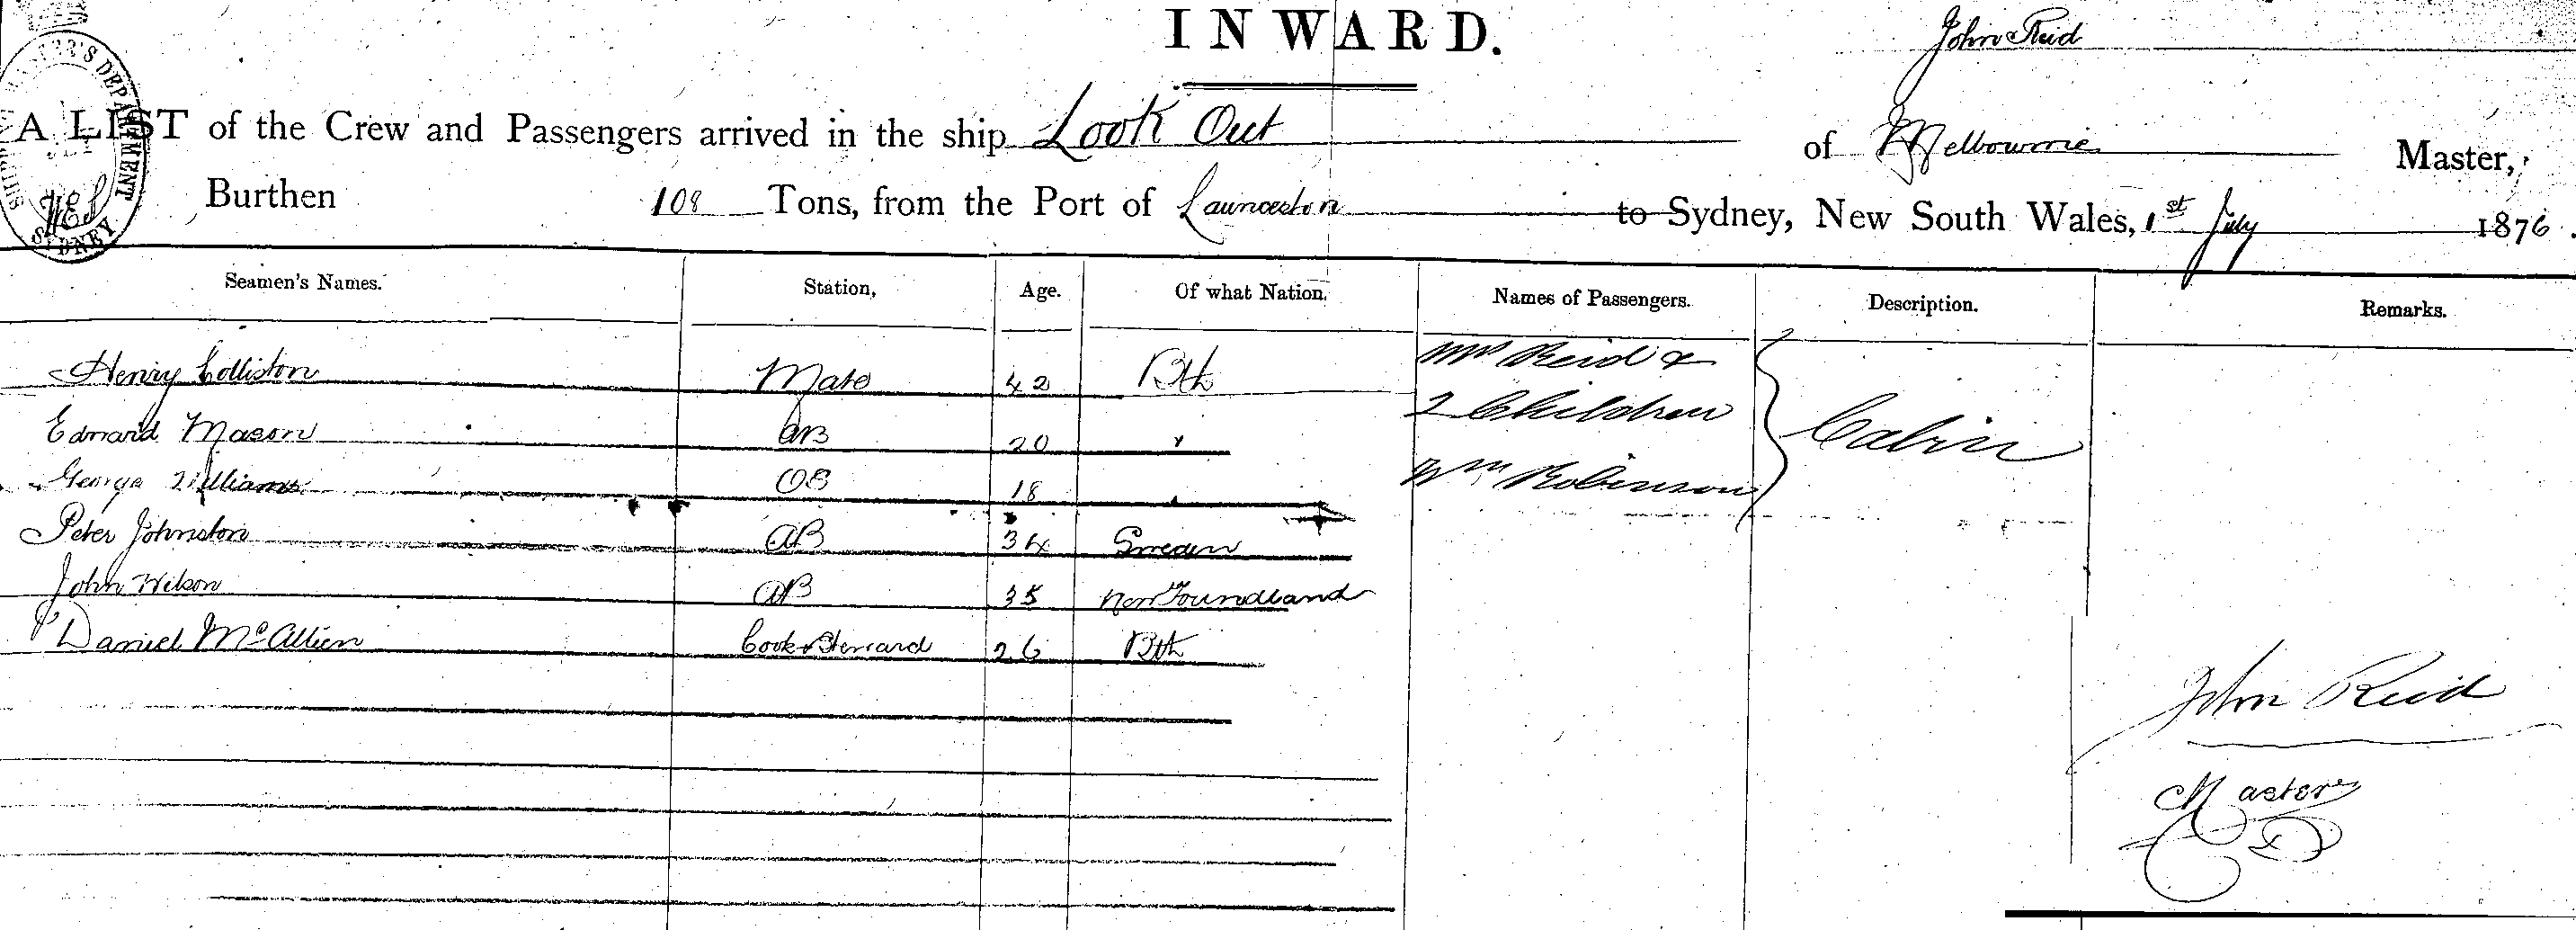 INWARD.
John Reid
A LIST of the Crew and Passengers arrived in the ship Look Out of Melbourne Master,
Burthen 108 Tons, from the Port of Launceston to Sydney, New South Wales, 1st July 1876.
SYDNEY
Seamen's Names. Station, Age. Of what Nation. Names of Passengers. Description. Remarks.
Henry Colliston Mate 42 Bth Mrs Reid &
2 Children
Edward Mason AB 20 " Cabin
George Williams OS 18 " Wm Robinson
Peter Johnston AB 34 Sweden
John Wilson AB 35 Newfoundland
Daniel Cook & Steward 26 Bth
John Reid
Master